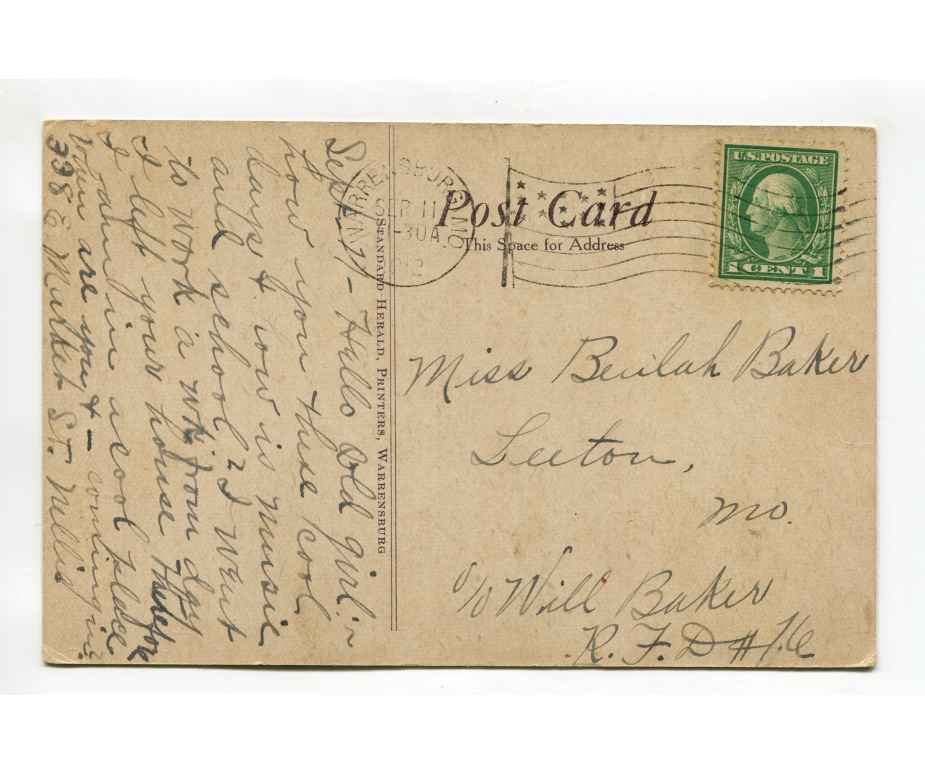 Sept - 11 - Hello Old girl. -
how you these cool
days, & how is music
and school? I went
to work a wk. from day
I left your house
I am in a cool place
when are you & - coming in?
398 E Market St. Nellie
STANDARD-HERALD, PRINTERS, WARRENSBURG
WARRENSBURG MO
SEP 11
-30A
1912
Post Card
This Space for Address
U.S. POSTAGE
1 CENT 1
Miss Beulah Baker
Leeton,
Mo.
c/o Will Baker
R. F. D # 16